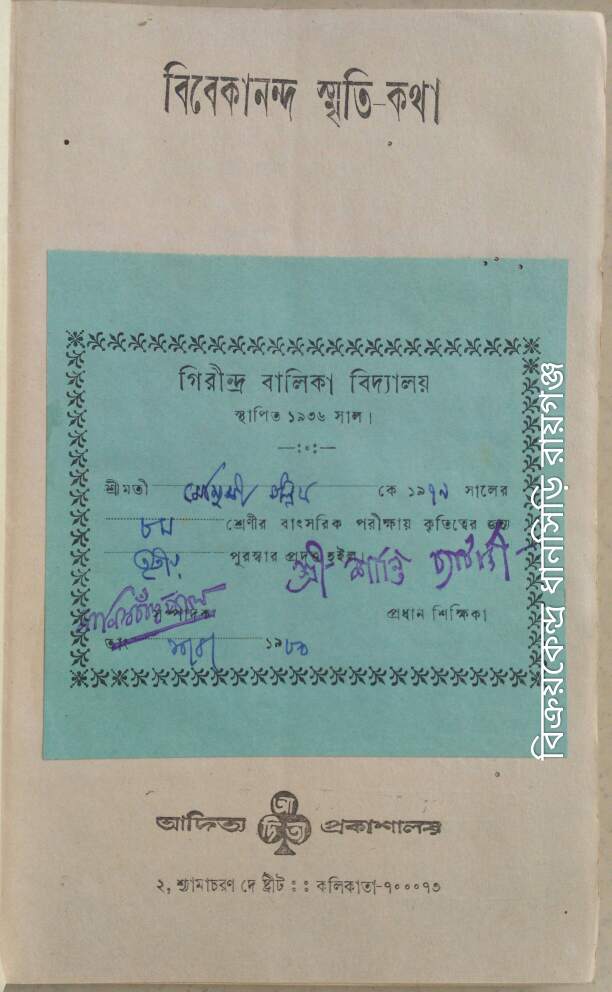 বিবেকানন্দ স্মৃতি-কথা
গিরীন্দ্র বালিকা বিদ্যালয়
স্থাপিত ১৯৩৬ সাল।
শ্রীমতী কে ১৯৭৯ সালের
৮ম শ্রেণীর বাৎসরিক পরীক্ষায় কৃতিত্বের জন্য
পুরস্কার প্রদত্ত হইল।
শ্রী শান্তি চ্যাটার্জী
সম্পাদক প্রধান শিক্ষিকা
তাং ১৯৮০
আদিত্য প্রকাশালয়
২, শ্যামাচরণ দে ষ্ট্রীট : : কলিকাতা-৭০০০৭৩
বিক্রয়কেন্দ্র ধানসিড়ি রায়গঞ্জ